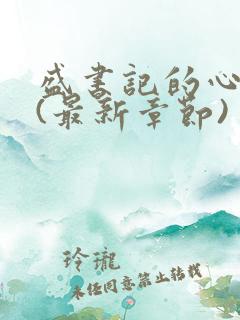 盛书記的心
(最新章節)
玲瓏
未经同意禁止转载